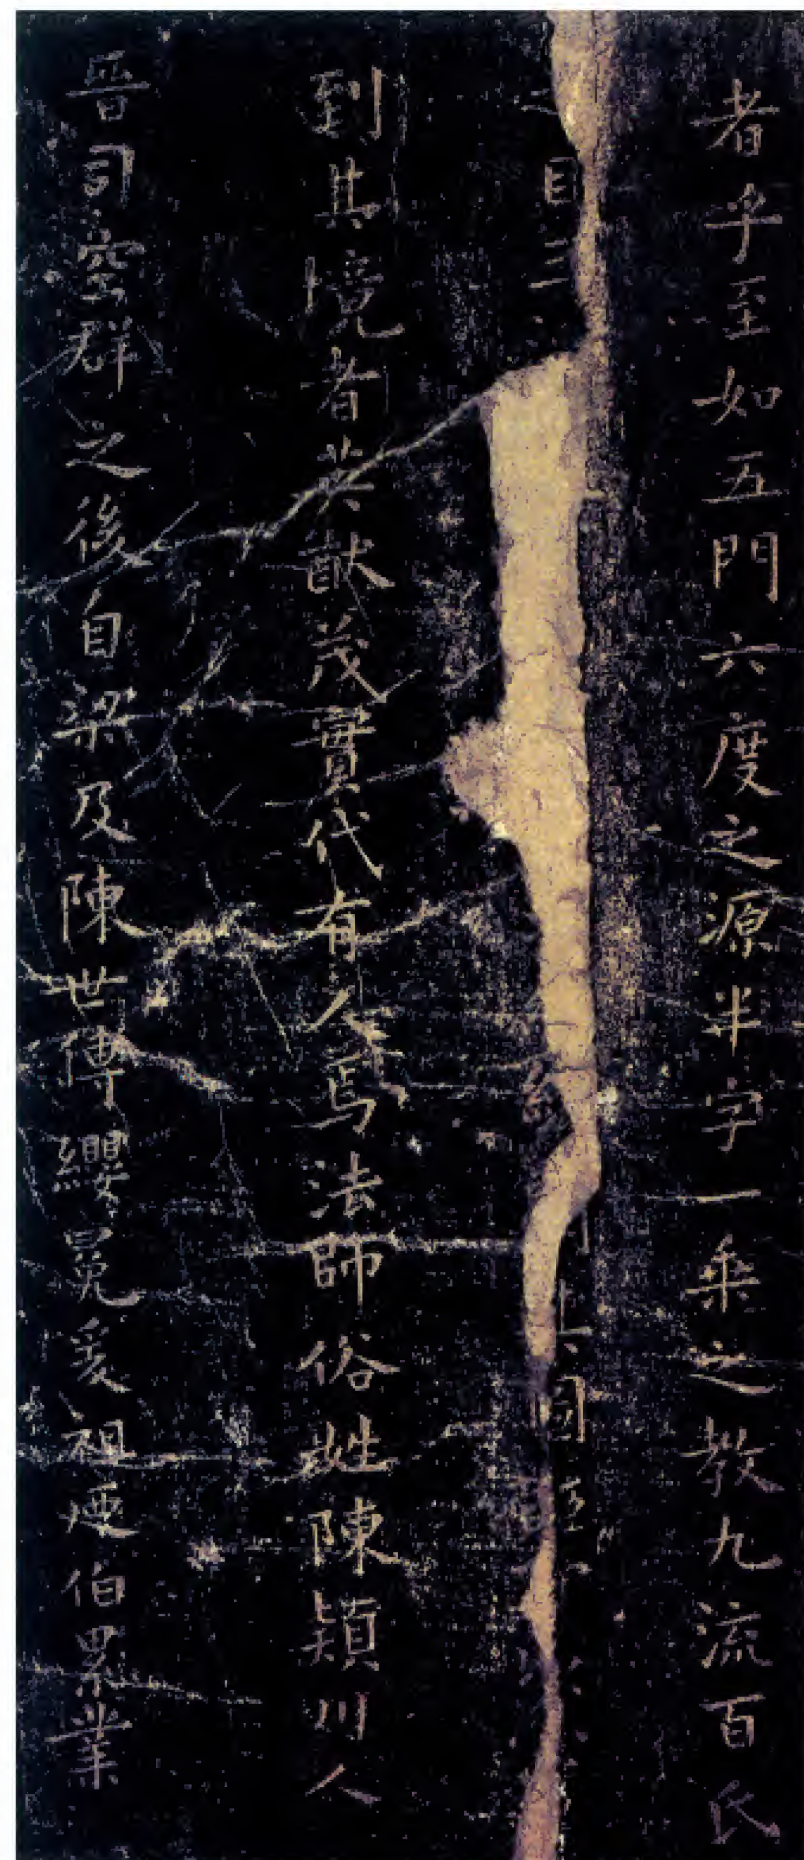 者乎至如五門六度之源半字一乘之教九流百氏
目三
到其境者英猷茂實代有人焉法師俗姓陳潁川人
晉司空群之後自梁及陳世傳纓冕爰祖堙伯累業